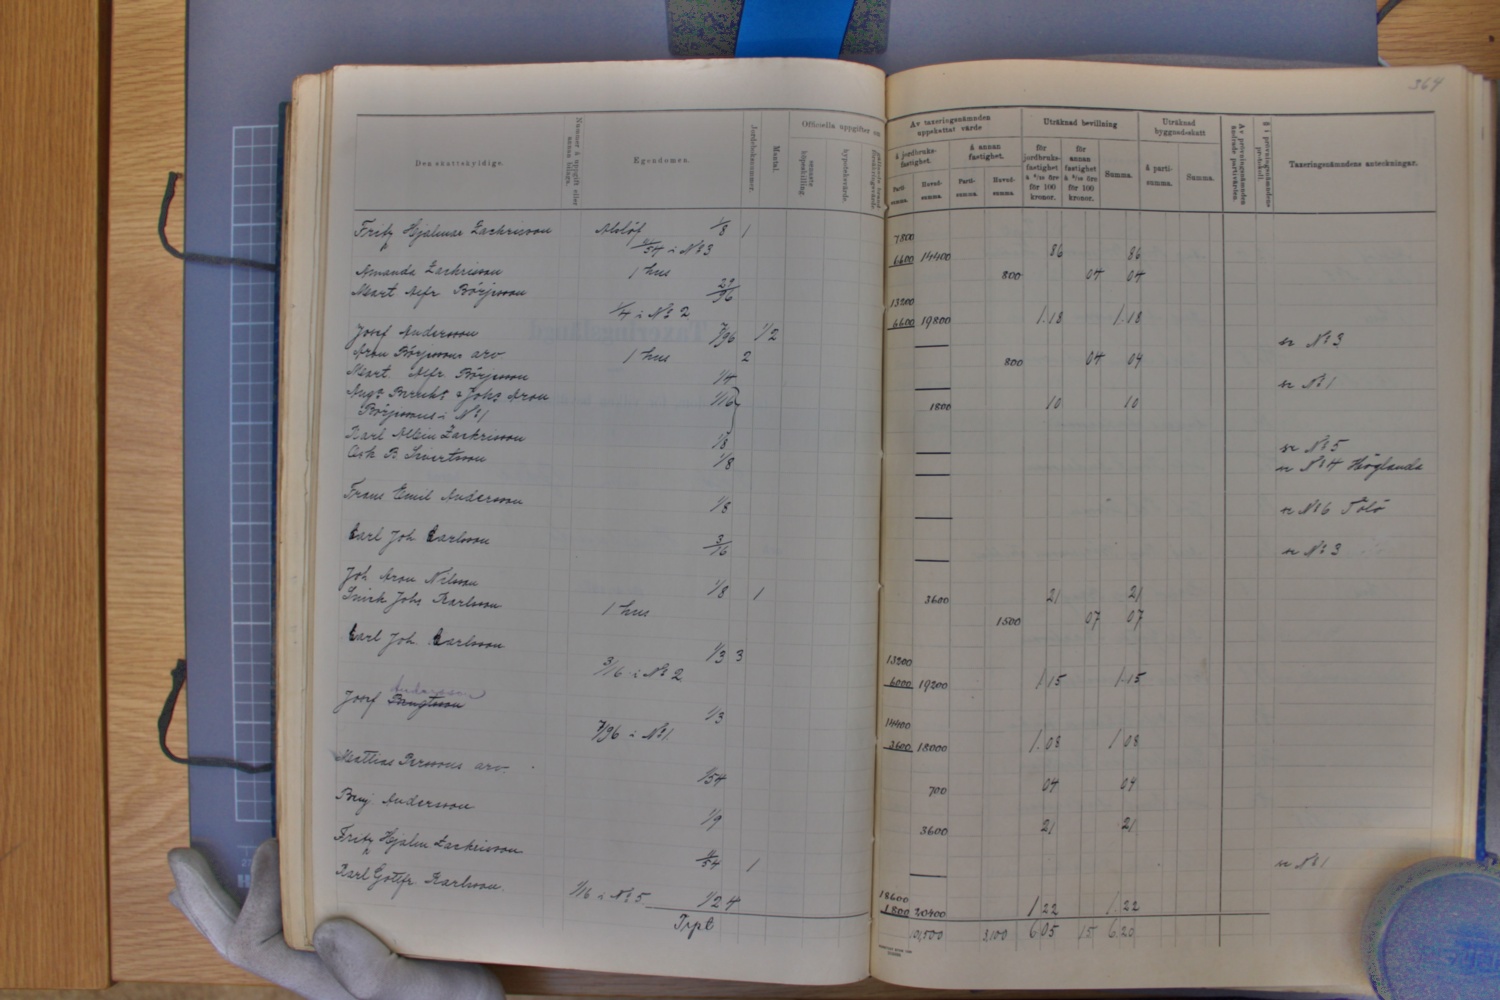 364
Den skattskyldige.
Nummer å uppgift eller annan bilaga.
Egendomen.
Jordeboksnummer.
Mantal.
Officiella uppgifter om
senaste köpeskilling.
hypoteksvärde.
Av taxeringsnämnden uppskattat värde
å jordbruksfastighet.
å annan fastighet.
Partisumma.
Huvudsumma.
Partisumma.
Huvudsumma.
Uträknad bevillning
för jordbruksfastighet å 6/10 öre för 100 kronor.
för annan fastighet å 5/10 öre för 100 kronor.
Summa.
Uträknad byggnadsskatt
å partisumma.
Summa.
Av prövningsnämnden ändrade partivärden.
§ i prövningsnämndens protokoll
Taxeringsnämndens anteckningar.
Fritz Hjalmar Zackrisson 1/8 1 7800
4/54 i No 3 6600 14400 86 86
Amanda Zackrisson 1 hus 800 04 04
Mart Alfr Börjesson 29/96 13200
1/4 i No 2 6600 19800 1.18 1.18
Josef Andersson 7/96 1/2 se No 3
Aron Börjessons arv 1 hus 2 800 04 04
Mart Alfr Börjesson 1/4 se No 1
Joh Aron 1/16 1800 10 10
Börjesson i No 1
Karl Albin Zackrisson 1/8 se No 5
B Sivertsson 1/8 se No 4 Höglanda
Frans Emil Andersson 1/8 se No 6 Tölö
Carl Joh Carlsson 3/16 se No 3
Joh Aron Nilsson 1/8 1 3600 21 21
Johs Karlsson 1 hus 1500 07 07
Carl Joh. Carlsson 1/3 3 13200
3/16 i No 2 6000 19200 1.15 1.15
Andersson
Josef Bengtsson 1/3 14400
7/96 i No 1 3600 18000 1.08 1.08
Mattias Perssons arv. 1/54 700 04 04
Benj. Andersson 1/9 3600 21 21
Fritz Hjalm Zackrisson 4/54 1 se No 1
Karl Gottfr. Karlsson 1/2 4 18600
1/16 i No 5 1800 20400 1.22 1.22
Trpt 101,500 3,100 6.05 15 6.20